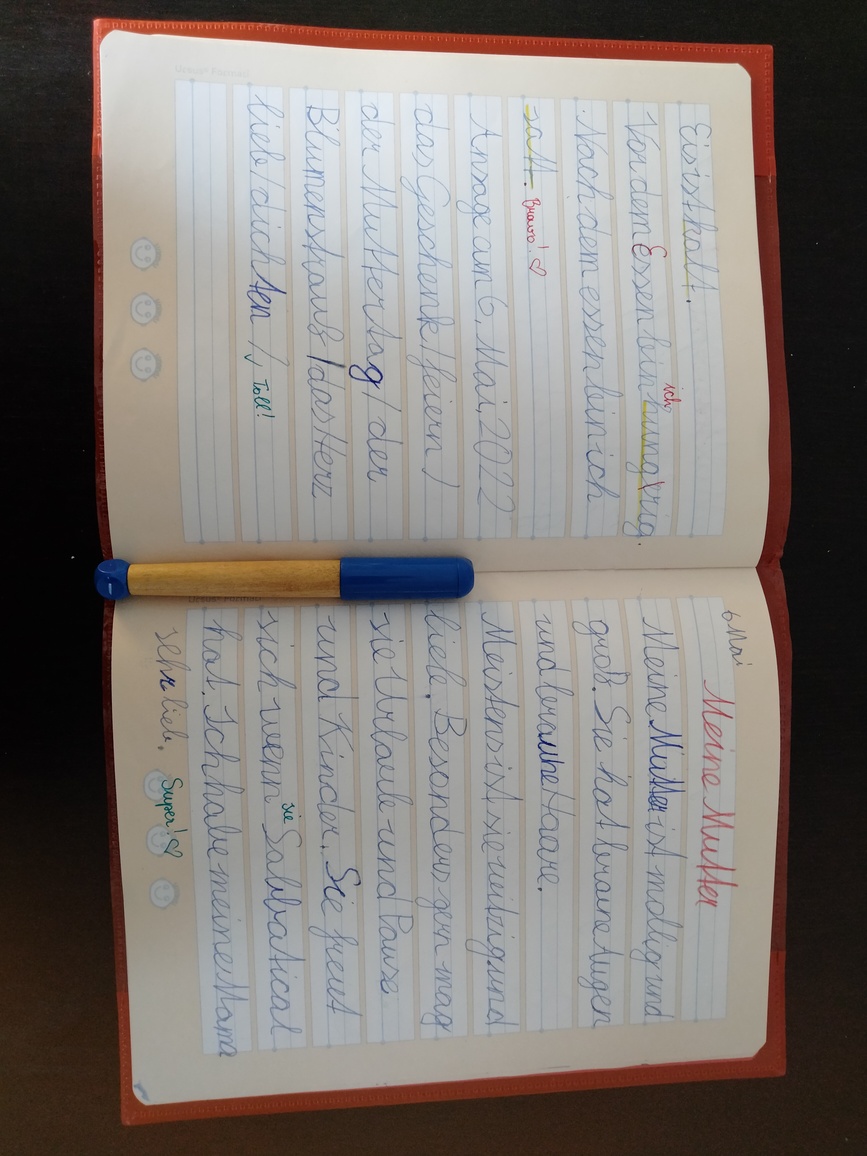 Eis ist kalt.
Vor dem Essen bin ich hungrig.
Nach dem essen bin ich
satt. Bravo! ♡
Ansage am 6. Mai, 2022
das Geschenk / feiern /
der Muttertag / der
Blumenstraus / das Herz
lieb / dichten / ✓ Toll!
6 Mai
Meine Mutter
Meine Mutter ist mollig und
groß. Sie hat braune Augen
und braune Haare.
Meistens ist sie und
lieb. Besonders gern mag
sie Urlaub und Pause
und Kinder. Sie freut
sich wenn sie Sabbatical
hat. Ich habe meine Mama
sehr lieb. Super! ♡